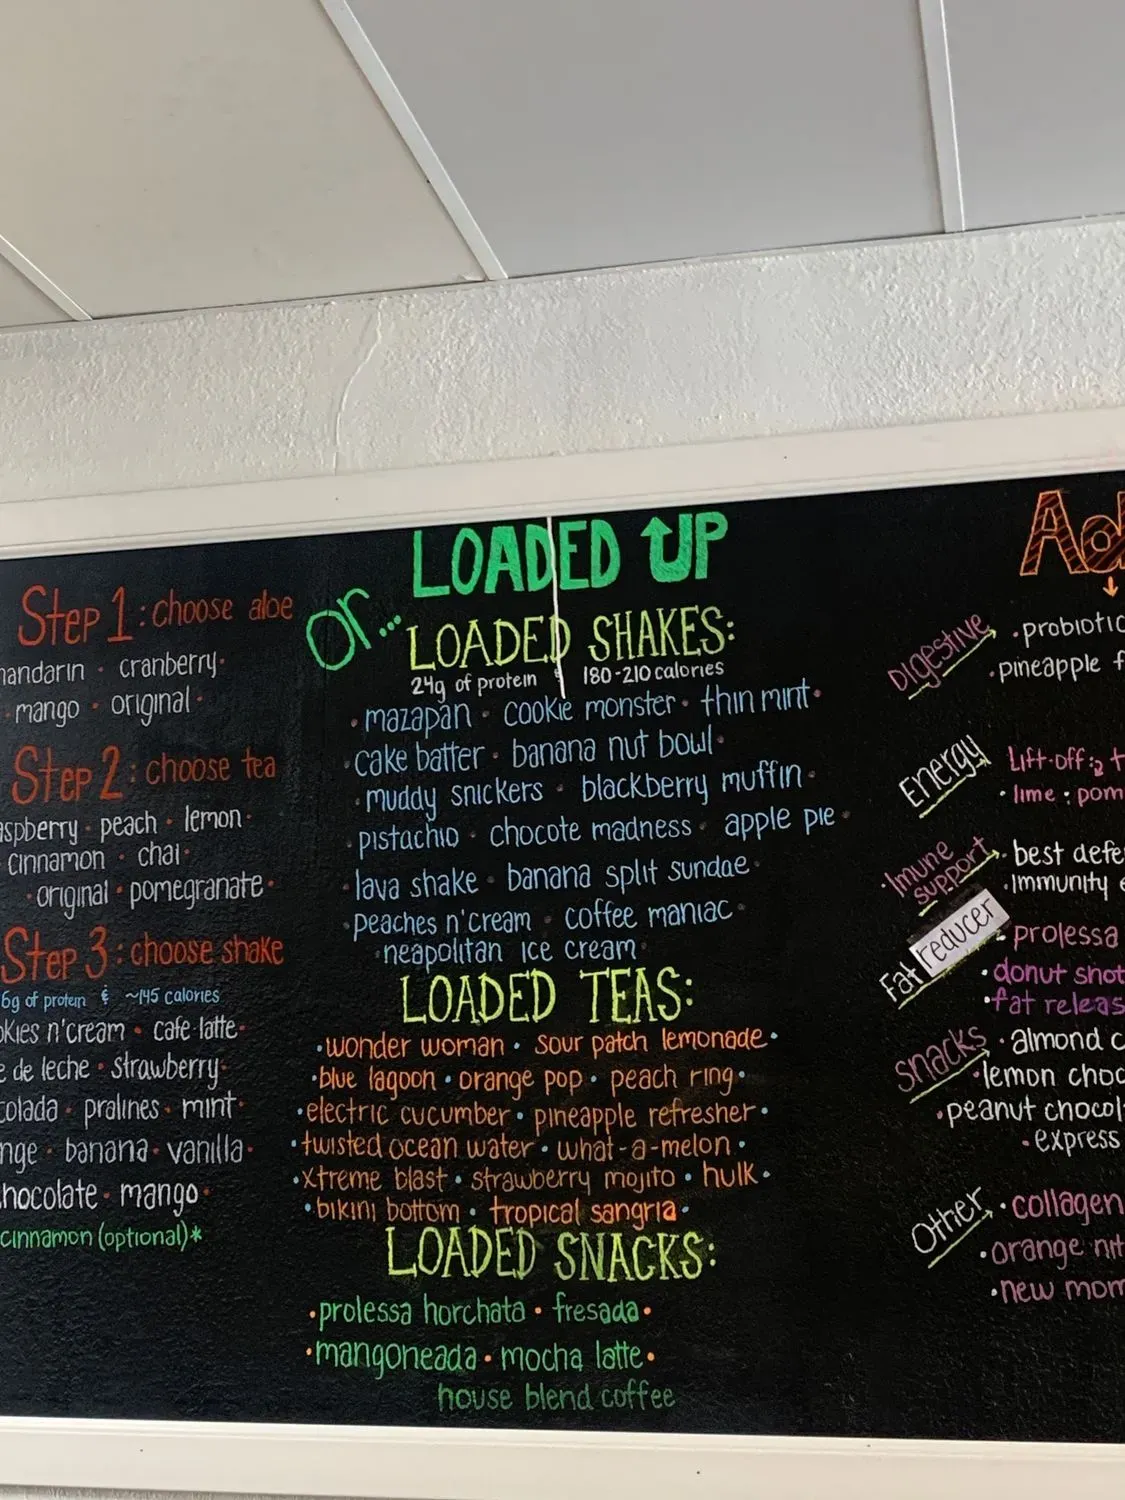 Step 1: choose aloe
mandarin · cranberry·
· mango · original ·
Step 2: choose tea
raspberry · peach · lemon·
cinnamon · chai·
· original · pomegranate·
Step 3: choose shake
6g of protein & ~145 calories
cookies n'cream · cafe latte·
de leche · strawberry·
colada · pralines · mint·
banana · vanilla·
chocolate · mango·
cinnamon (optional)*
Or...
LOADED UP
LOADED SHAKES:
24g of protein & 180-210 calories
· mazapán · cookie monster · thin mint·
·cake batter · banana nut bowl·
·muddy snickers · blackberry muffin·
·pistachio · chocote madness · apple pie·
·lava shake · banana split sundae·
·peaches n'cream · coffee maniac·
·neapolitan ice cream·
LOADED TEAS:
·wonder woman · sour patch lemonade·
·blue lagoon · orange pop · peach ring·
·electric cucumber · pineapple refresher·
·twisted ocean water · what-a-melon·
·xtreme blast · strawberry mojito · hulk·
·bikini bottom · tropical sangria·
LOADED SNACKS:
·prolessa horchata · fresada·
·mangoneada · mocha latte·
house blend coffee
Ad
Digestive
·probiotic
·pineapple f
Energy
Lift-off:
·lime : pom
·Imune support
·best defe
·Immunity e
Fat reducer
·prolessa
·donut shot
·fat releas
Snacks
·almond c
·lemon choc
·peanut chocol
·express
Other
·collagen
·orange nit
·new mom